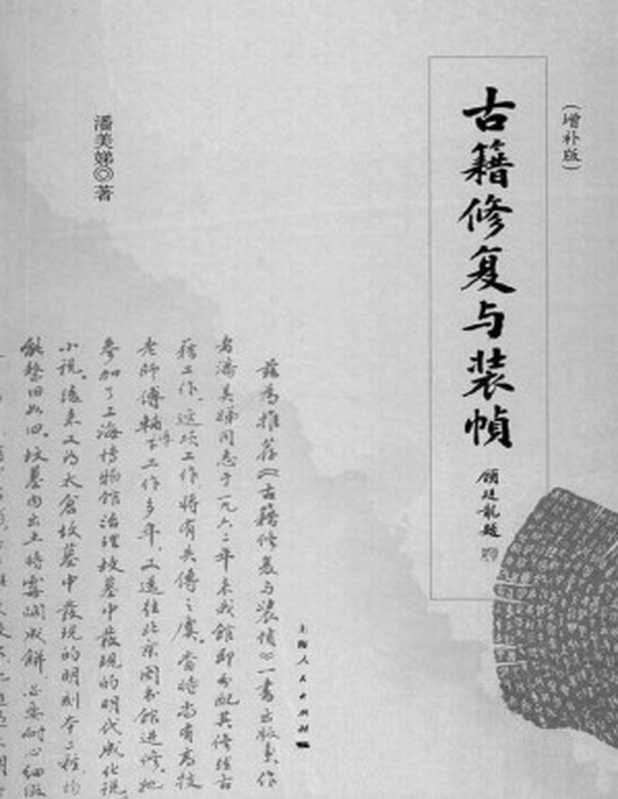 (增补版)
古籍修复与装帧
顾廷龙题
潘美娣◎著
上海人民出版社
兹为推荐《古籍修复与装帧》一书出版其作
者潘美娣同志于一九六二年来我馆即分配其修缮古
籍工作。这项工作将有失传之虞。当时尚有高技
老师傅辅导工作多年,又送往北京图书馆进修。她
参加了上海博物馆治理坟墓中发现的明代成化说
小说。后来又为太仓坟墓中发现的明刻本二种,均
能整旧如旧。坟墓内出土时霉烂成饼,必要耐心细致